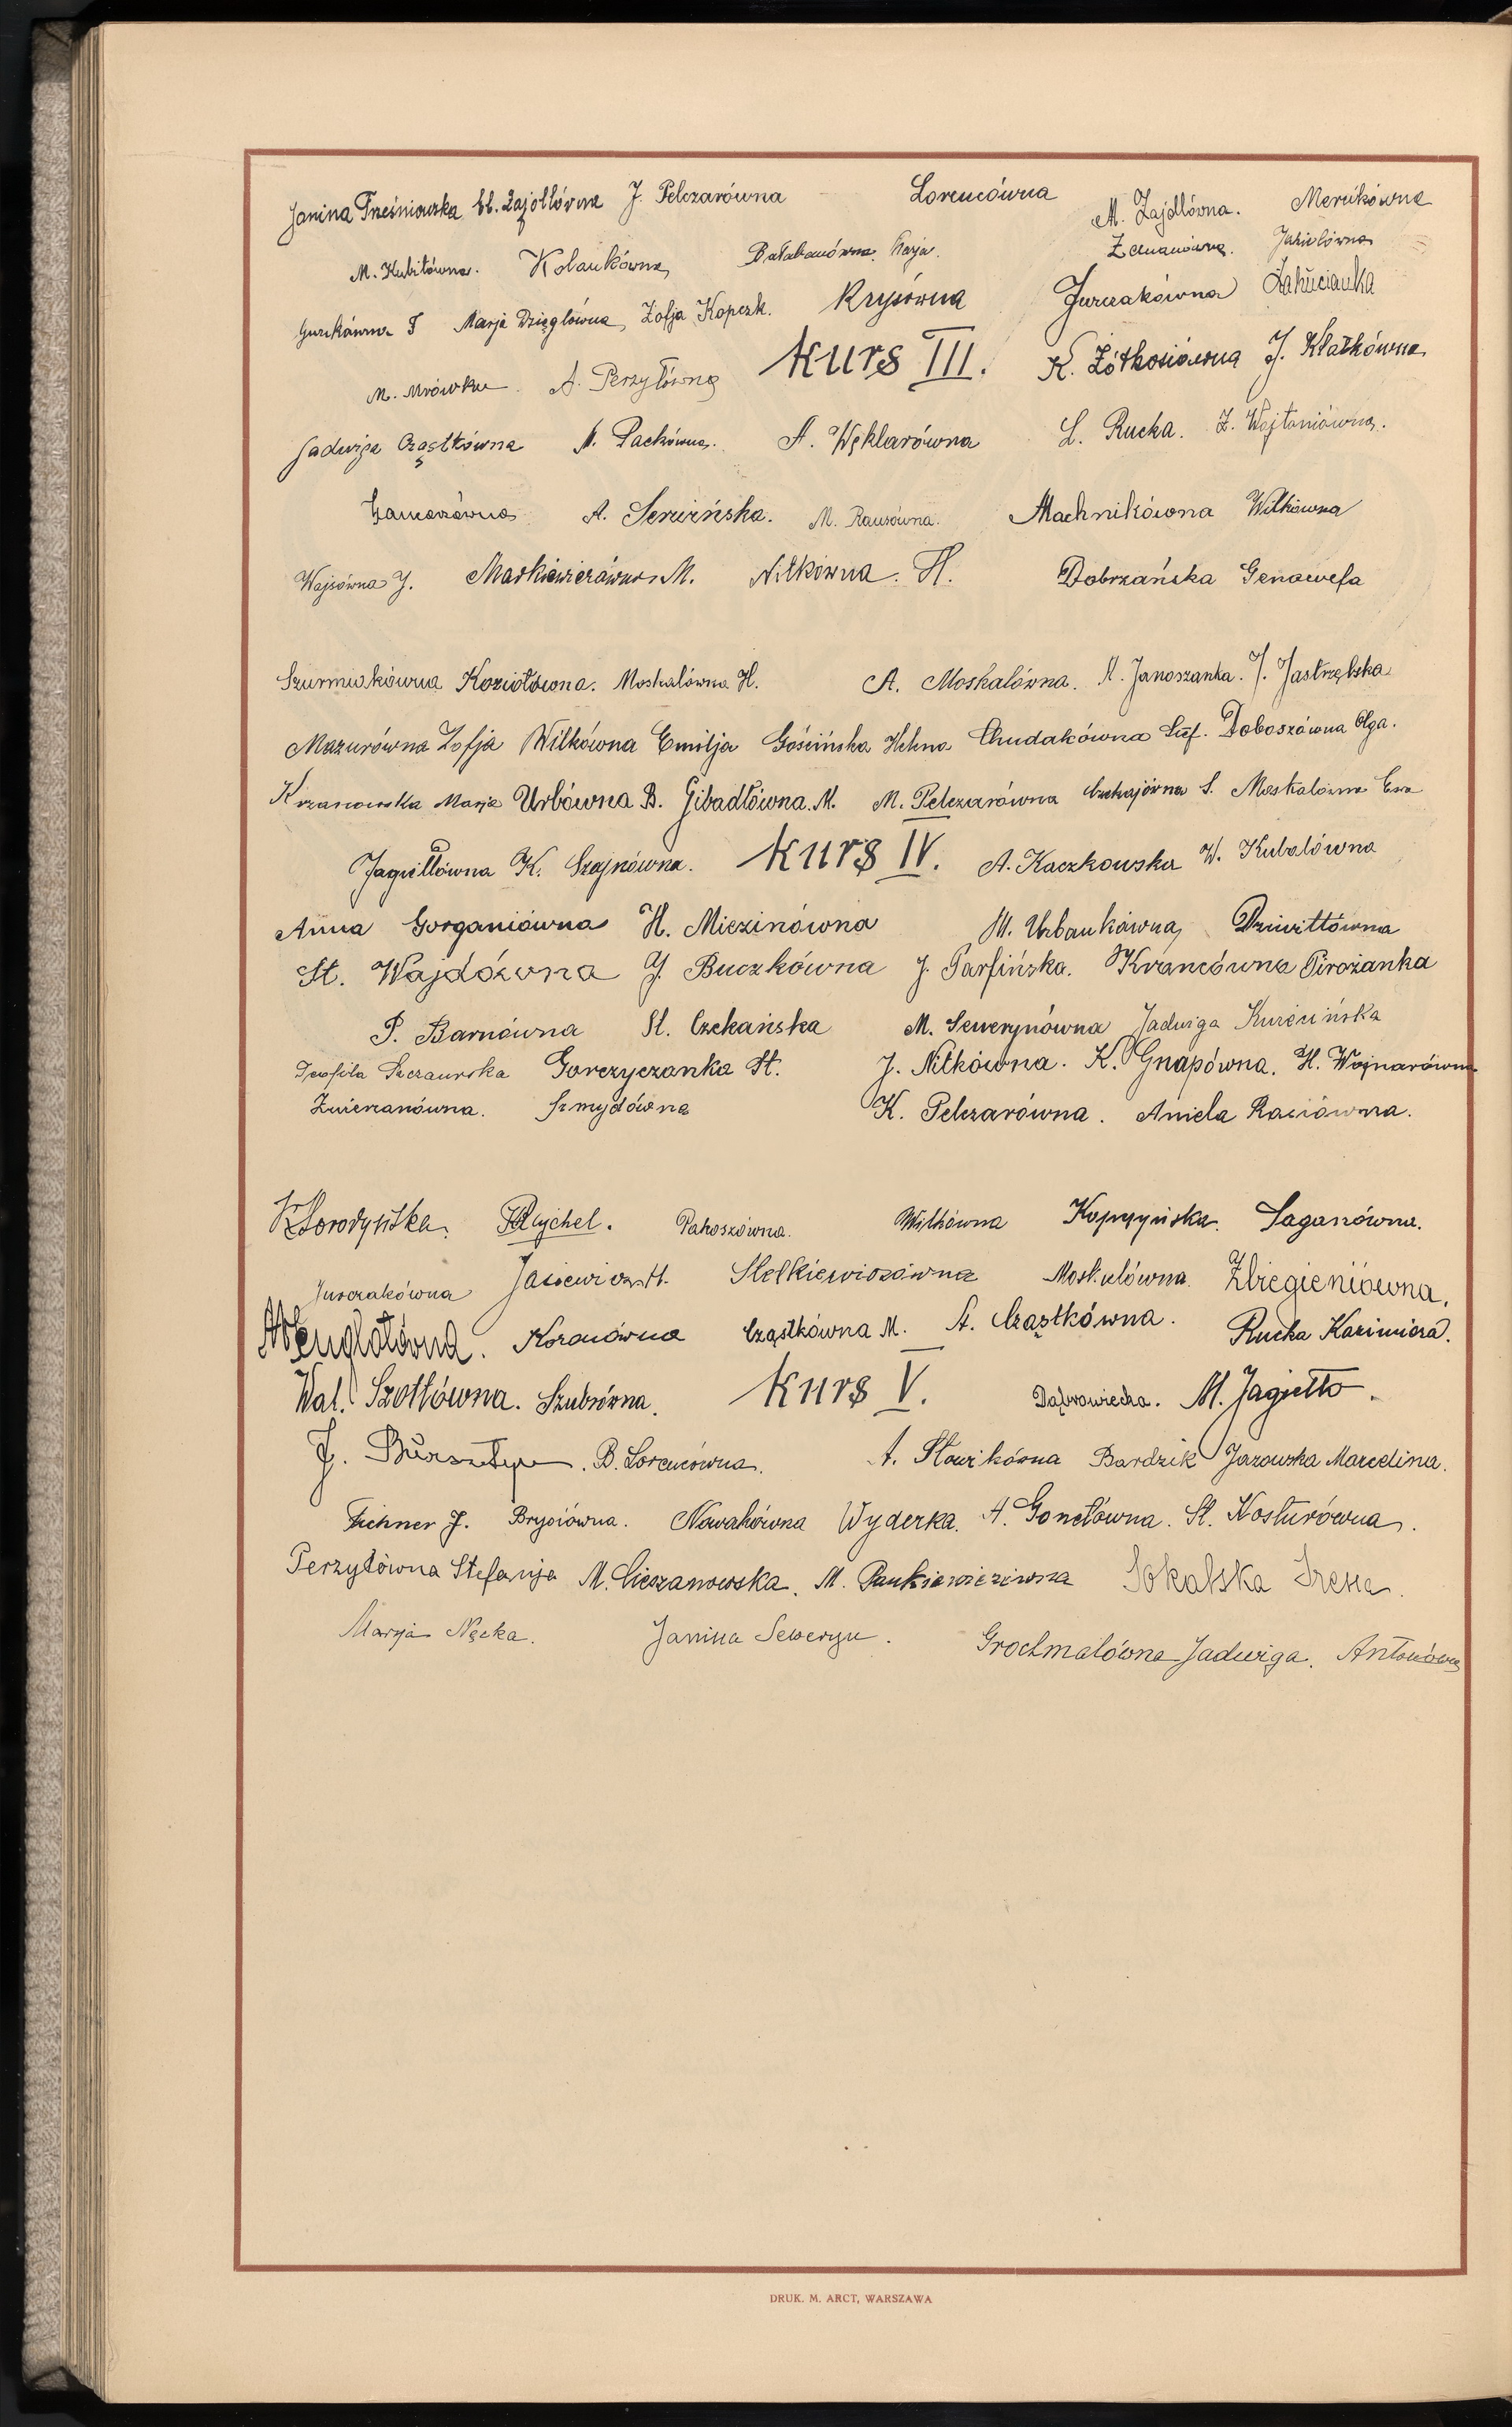 Janina Trześniowska J. Pelczarówna Lorencówna M. Zajdlówna. Merukówna
M. Kubitówna. Kolankówna Bałabanówna Marja. Zemanówna.
Marja Dzięglówna, Zofja Kopczk. Krysówna Jurczakówna Łańucianka
M. Mrówka. A. Perzyłówna Kurs III. K. Żółkosiówna J. Kłatkówna
Jadwiga Cząstkówna A. Packówna. A. Węklarówna L. Rucka. Z. Wojtoniówna.
A. Serwińska. M. Rausówna. Machnikówna Wilkówna
Wajsówna J. Markiewiczówna M. Nitkówna. H. Dobrzańska Genowefa
Szurmiakówna Koziołówna. Moskalówna H. A. Moskalówna. A. Janoszanka. J. Jastrzębska
Mazurówna Zofja Wilkówna Emilja Gościńska Helena Chudakówna Doboszówna Olga.
Krzanowska Marja Urbówna B. Gibadłówna. M. M. Pelczarówna Czekajówna S. Moskalówna Ewa
Jagiełłówna K. Szajnówna. Kurs IV. A. Kaczkowska W. Kubalówna
Anna Gorganiówna H. Miezinówna M. Urbankówna, Dziwittówna
St. Wajdówna J. Buczkówna J. Parfińska. Krzancówna Pirożanka
P. Barnówna St. Czekańska M. Sewerynówna Jadwiga Kurcińska
Teofila Szczaurska Gorczyczanka St. J. Nitkówna. K. Gnapówna. H. Wojnarówna
Zwierzanówna. Szmydówna K. Pelczarówna. Aniela Raciówna.
K. Horodyńska. Rajchel. Pakoszówna. Wilkówna Kopczyńska. Saganówna.
Jurczakówna Stelkiewiczówna Moskalówna. Zbiegieniówna.
Menglatówna. Kozanówna Cząstkówna M. A. Cząstkówna. Rucka Kazimiera.
Wal. Szottówna. Szubrówna. Kurs V. Dąbrowiecka. M. Jagiełło.
J. Bursztyn. B. Lorencówna. A. Słowikówna Bardzik Jazowska Marcelina.
Fichner J. Bryciówna. Nowakówna Wyderka. A. Gonetówna. St. Kosturówna.
Perzyłówna Stefanja M. Cieszanowska. M. Pankiewiczówna Sokalska Irena.
Marja Nęcka. Janina Seweryn. Grochmalówna Jadwiga. Antonówna
DRUK. M. ARCT, WARSZAWA